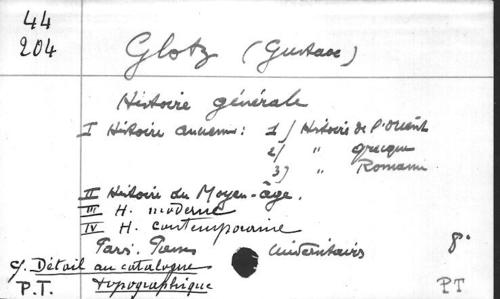 44
204
Glotz (Gustave)
Histoire générale
I Histoire ancienne: 1) Histoire de l'Orient
2) " grecque
3) " Romaine
II Histoire du Moyen-âge.
III H. moderne
IV H. contemporaine
Paris. Presses Universitaires 8°
cf. Détail au catalogue
P.T. topographique
PT